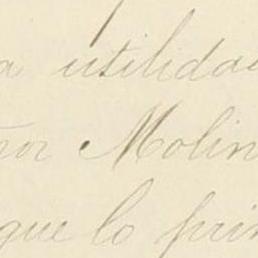 a utilidad
ñor Molin
que lo prin